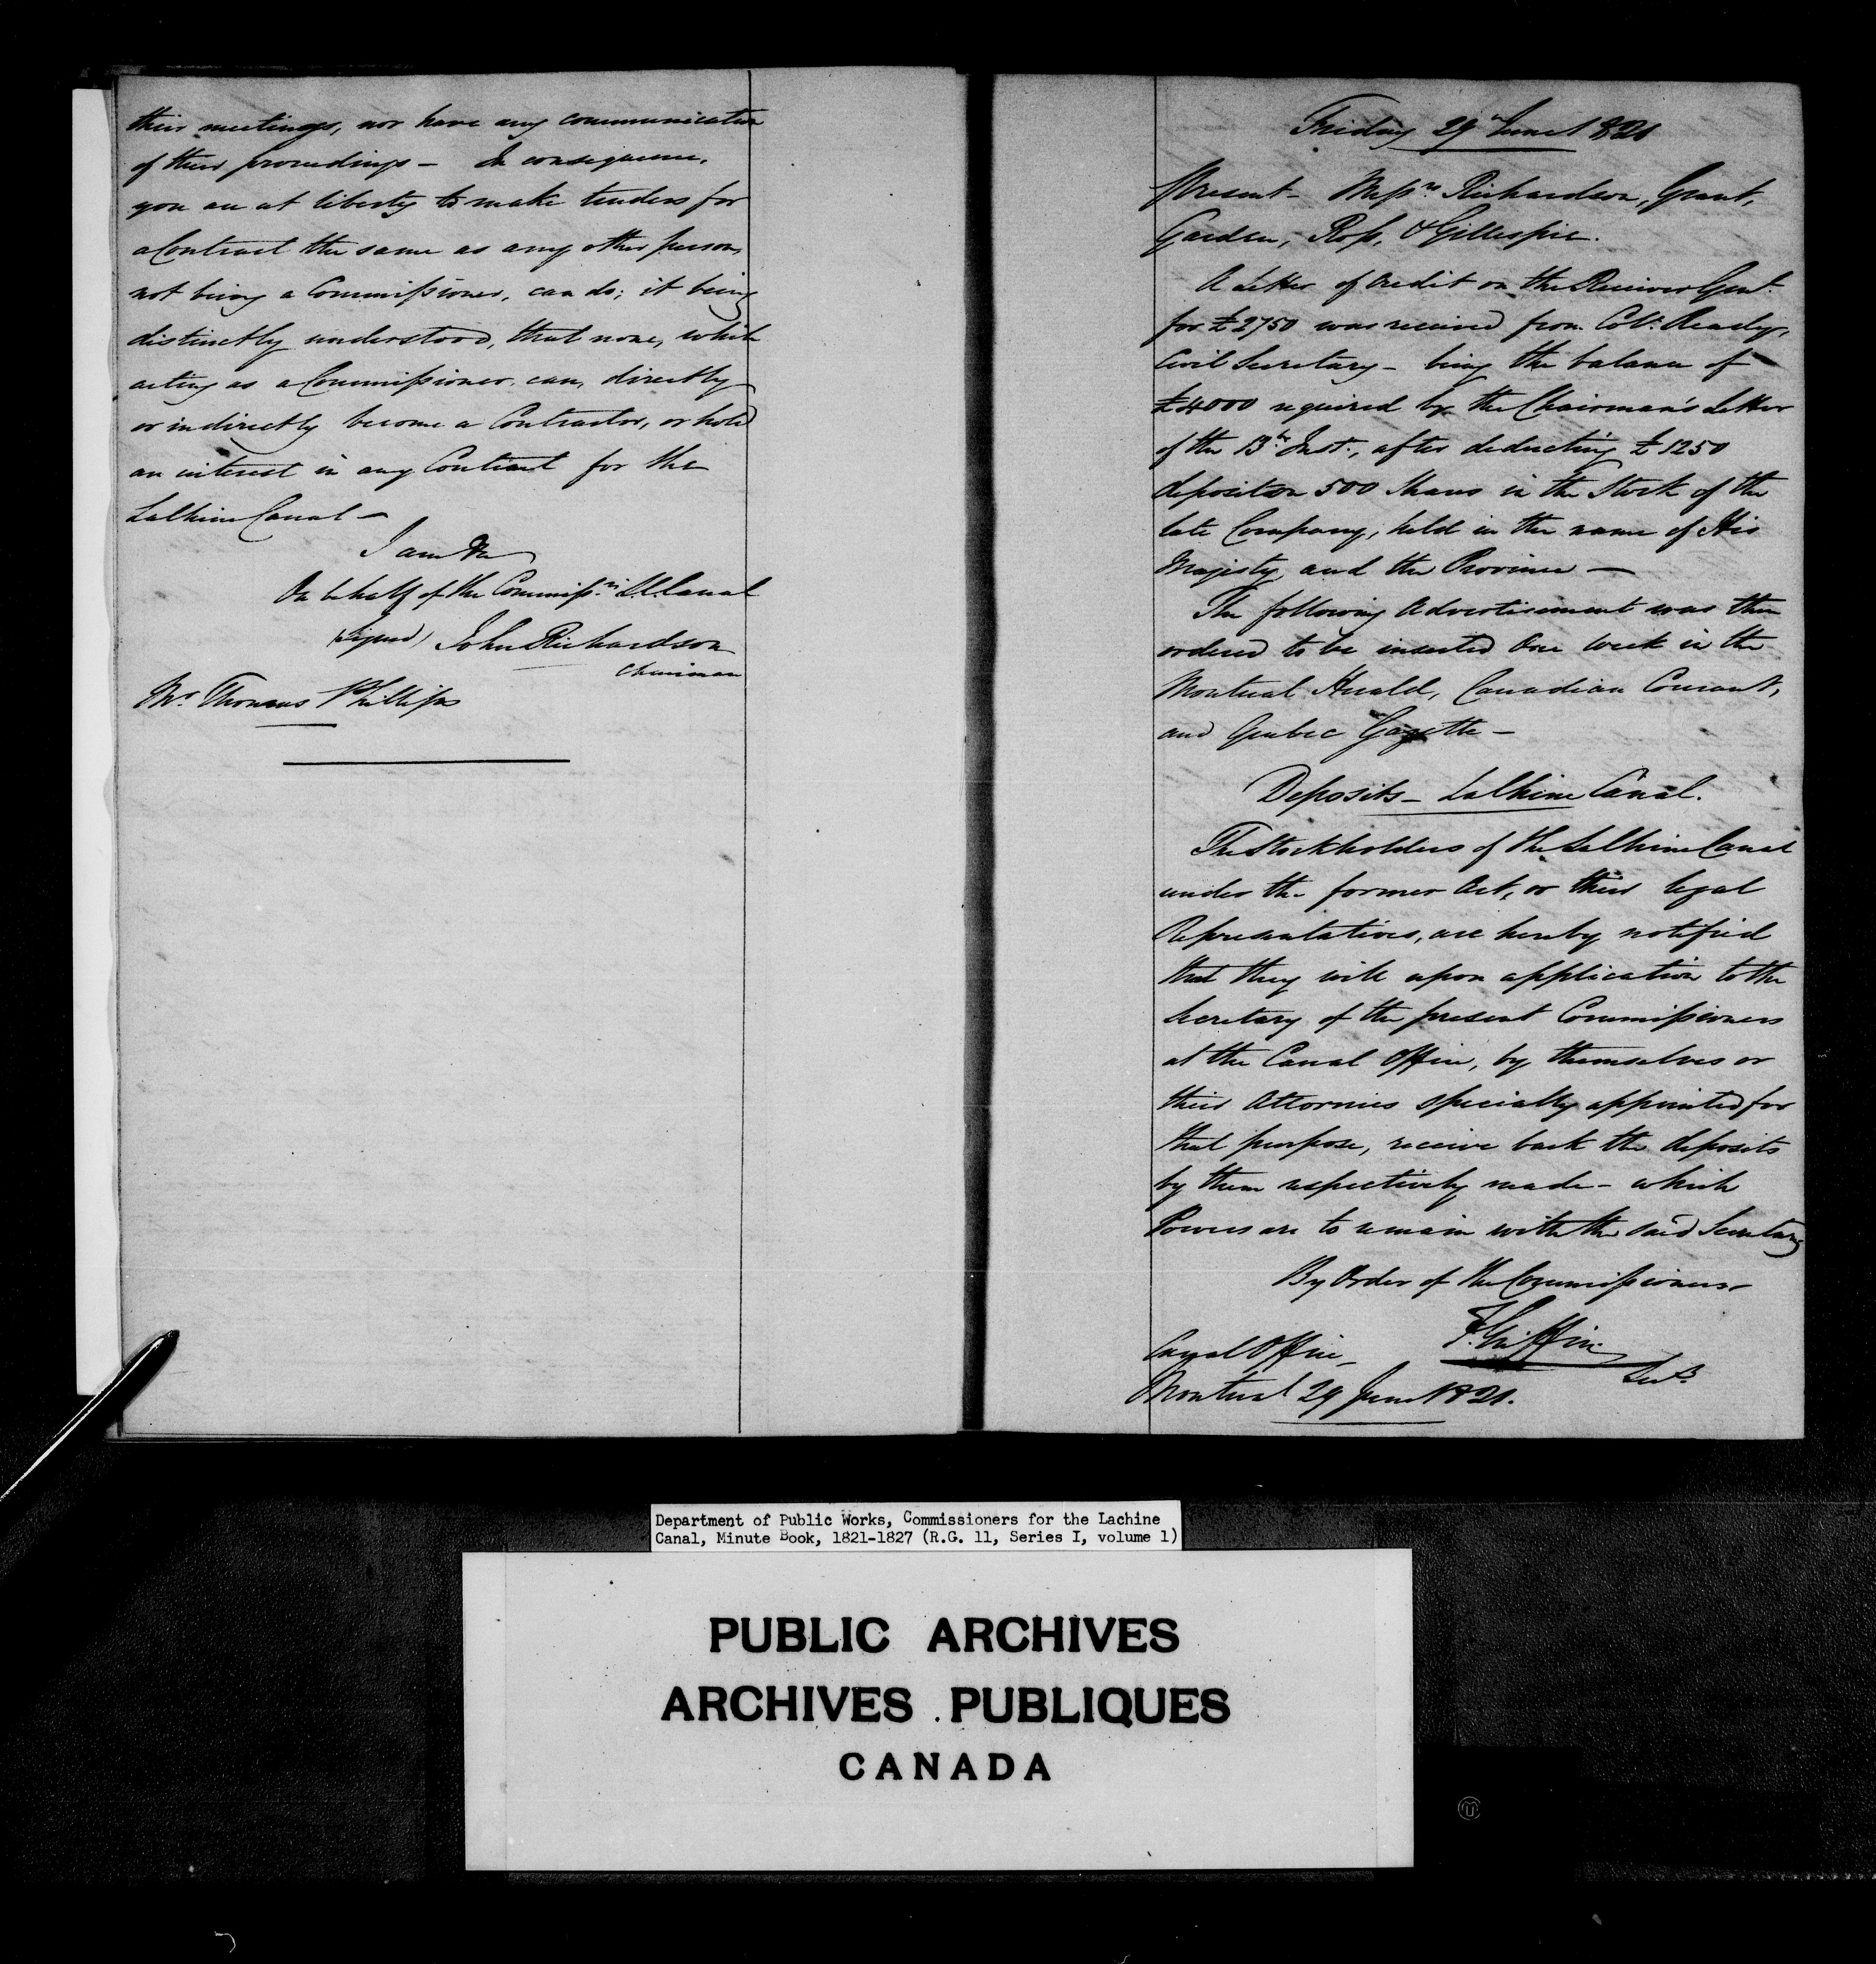 their meetings, nor have any communication
of their proceedings — In consequence,
you are at liberty to make tenders for
a Contract the same as any other person,
not being a Commissioner, can do; it being
distinctly understood, that none, while
acting as a Commissioner, can, directly
or indirectly become a Contractor, or hold
an interest in any Contract for the
LaChine Canal —
I am &c
On behalf of the Commissrs L.C. Canal
(signed) John Richardson
Chairman
Mr Thomas Phillips
Friday 29th June 1821
Present — Messrs Richardson, Grant,
Garden, Ross, & Gillespie.
A Letter of Credit on the Receiver Genl.
for £2750 was received from Coll. Ready,
Civil Secretary — being the balance of
£4000 required by the Chairman's Letter
of the 13th Inst., after deducting £1250
deposit on 500 Shares in the Stock of the
late Company, held in the name of His
Majesty and the Province —
The following Advertisement was then
ordered to be inserted One Week in the
Montreal Herald, Canadian Courant,
and Quebec Gazette —
Deposits — LaChine Canal.
The Stockholders of the LaChine Canal
under the former Act, or their legal
Representatives, are hereby notified
that they will upon application to the
Secretary of the present Commissioners
at the Canal Office, by themselves or
their Attornies specially appointed for
that purpose, receive back the deposits
by them respectively made — which
Powers are to remain with the said Secretary
By Order of the Commissioners
F. Griffin
Secy.
Canal Office,
Montreal 29 June 1821.
Department of Public Works, Commissioners for the Lachine
Canal, Minute Book, 1821-1827 (R.G. 11, Series I, volume 1)
PUBLIC ARCHIVES
ARCHIVES PUBLIQUES
CANADA